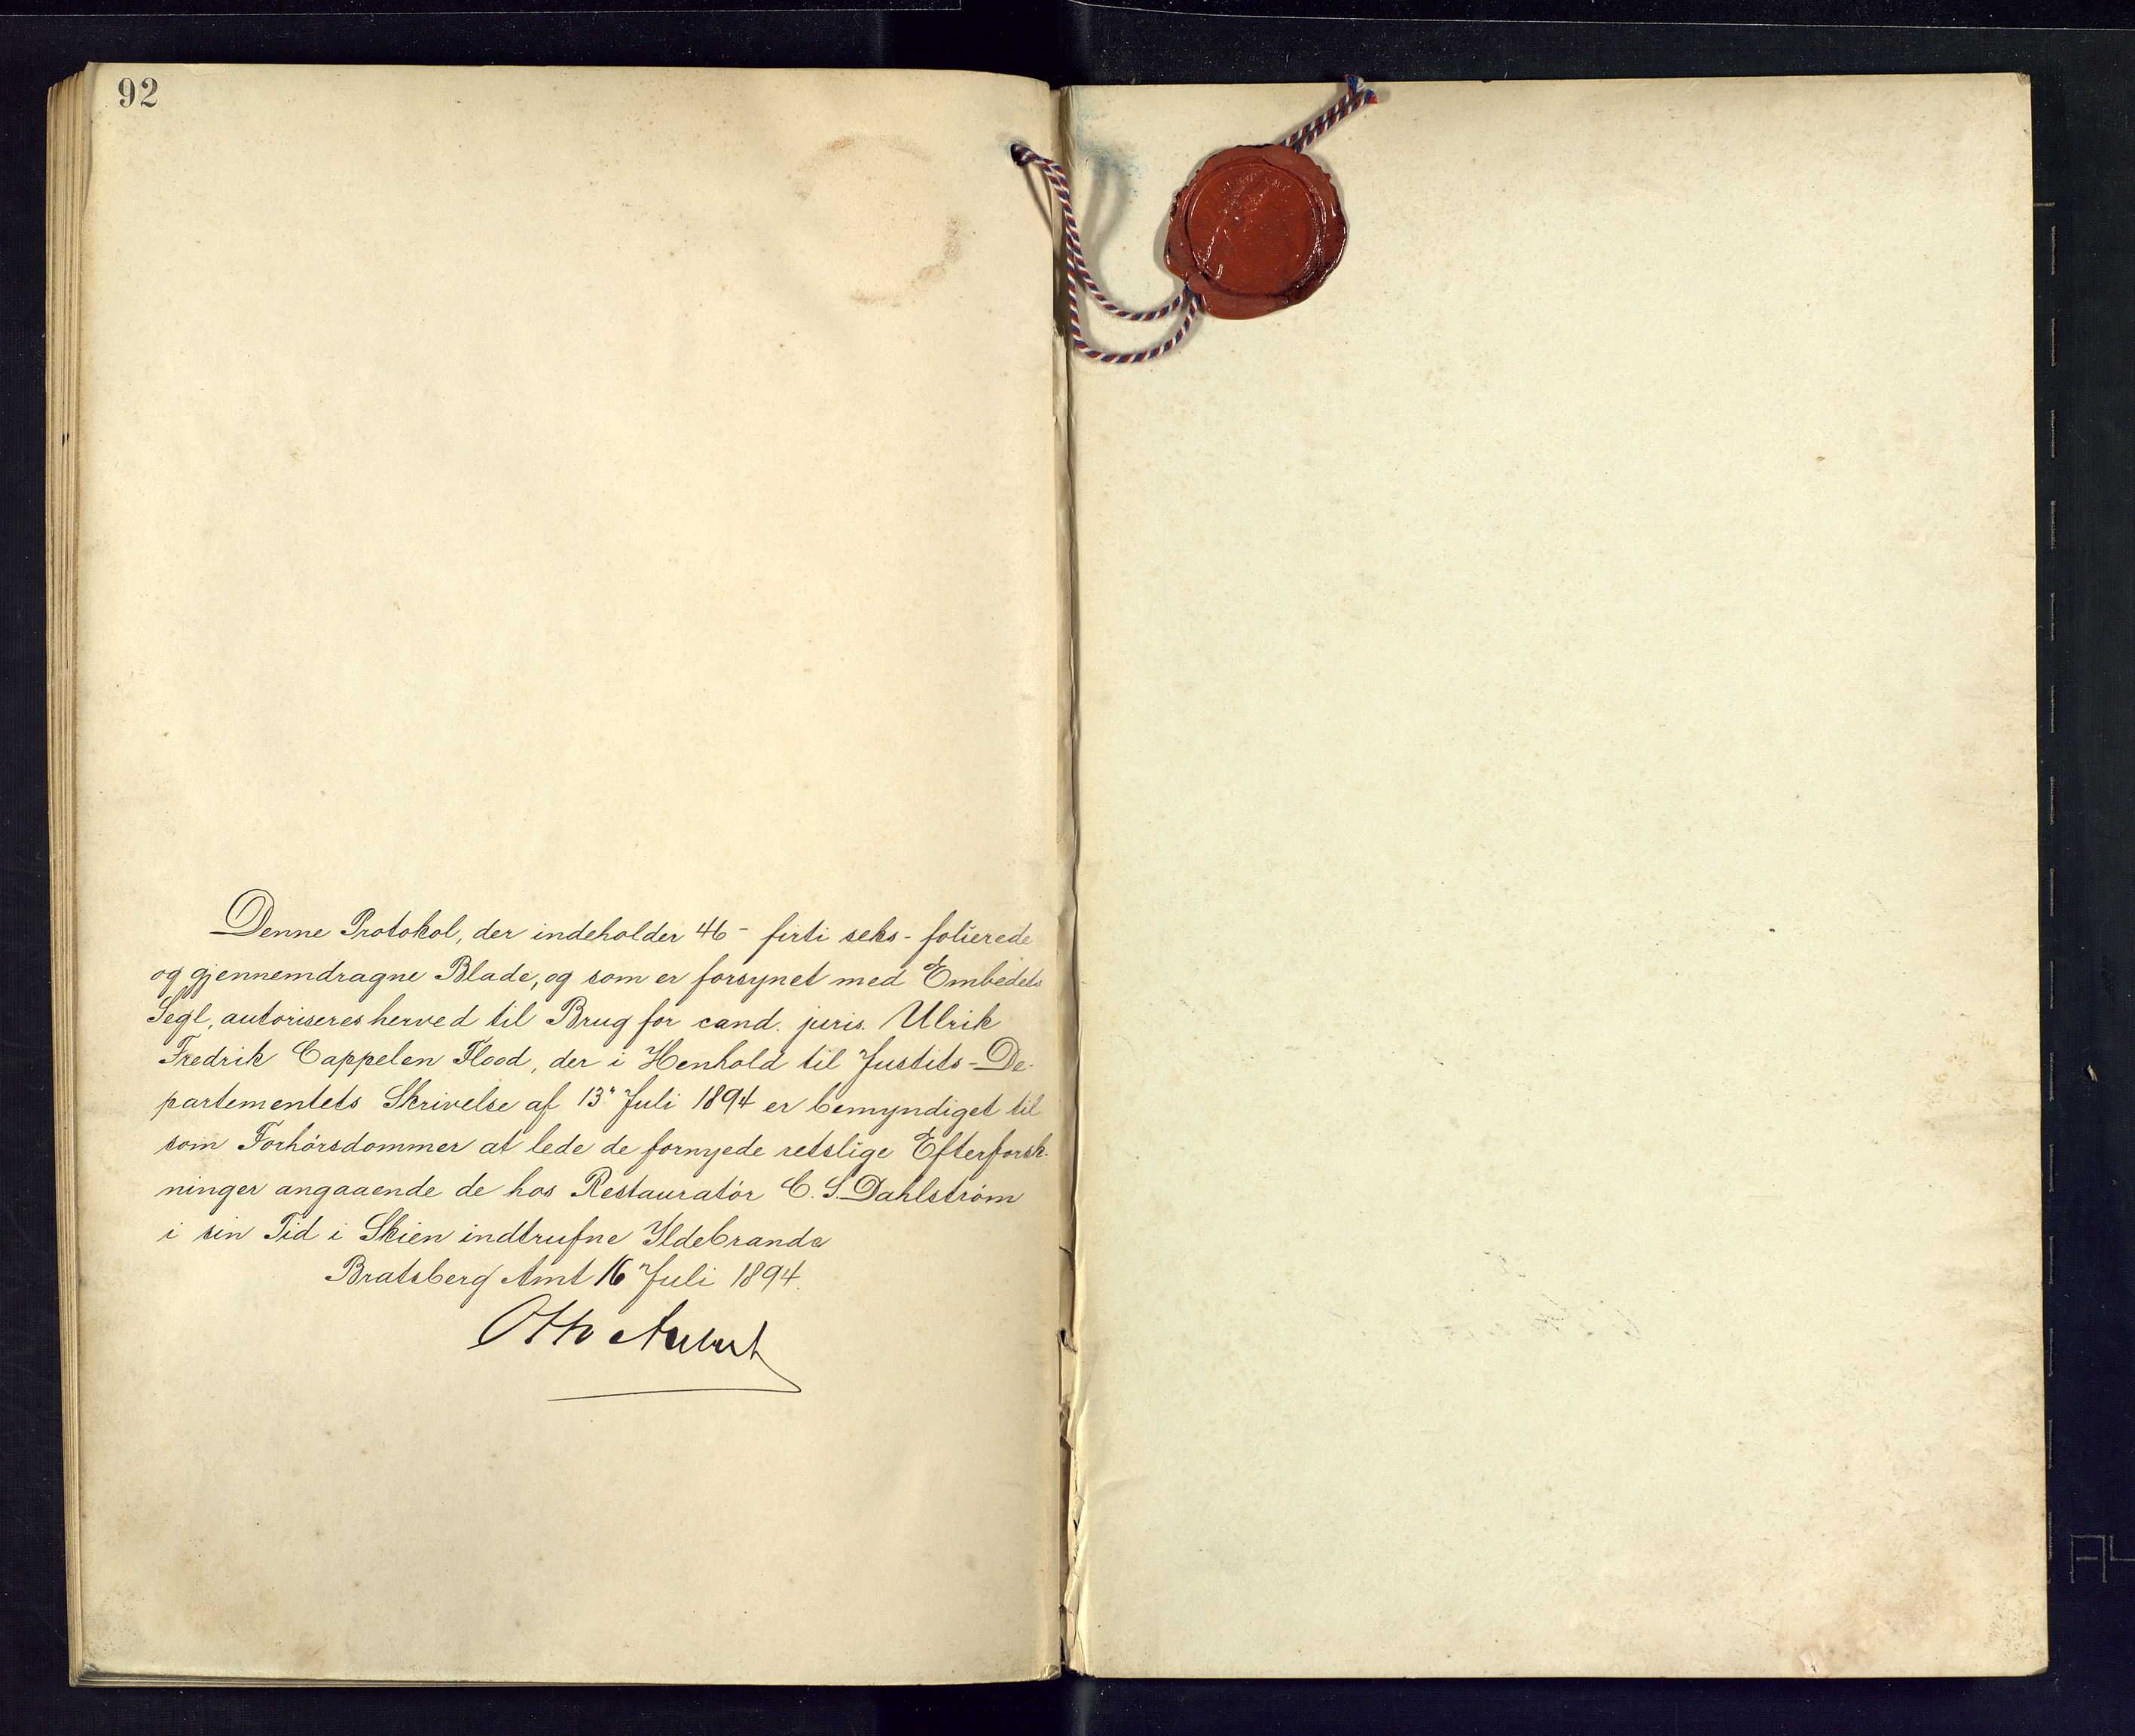 92
Denne Protokol, der indeholder 46 - firti seks - folierede
og gjennemdragne Blade, og som er forsynet med Embedets
Segl, autoriseres herved til Brug for cand. juris. Ulrik
Fredrik Cappelen Flood, der i Henhold til Justits-De-
partementets Skrivelse af 13' Juli 1894 er bemyndiget til
som Forhörsdommer at lede de fornyede retslige Efterforsk-
ninger angaaende de hos Restauratör C. S. Dahlström
i sin Tid i Skien indtrufne Ildebrande
Bratsberg Amt 16 Juli 1894.
Otto Aubert